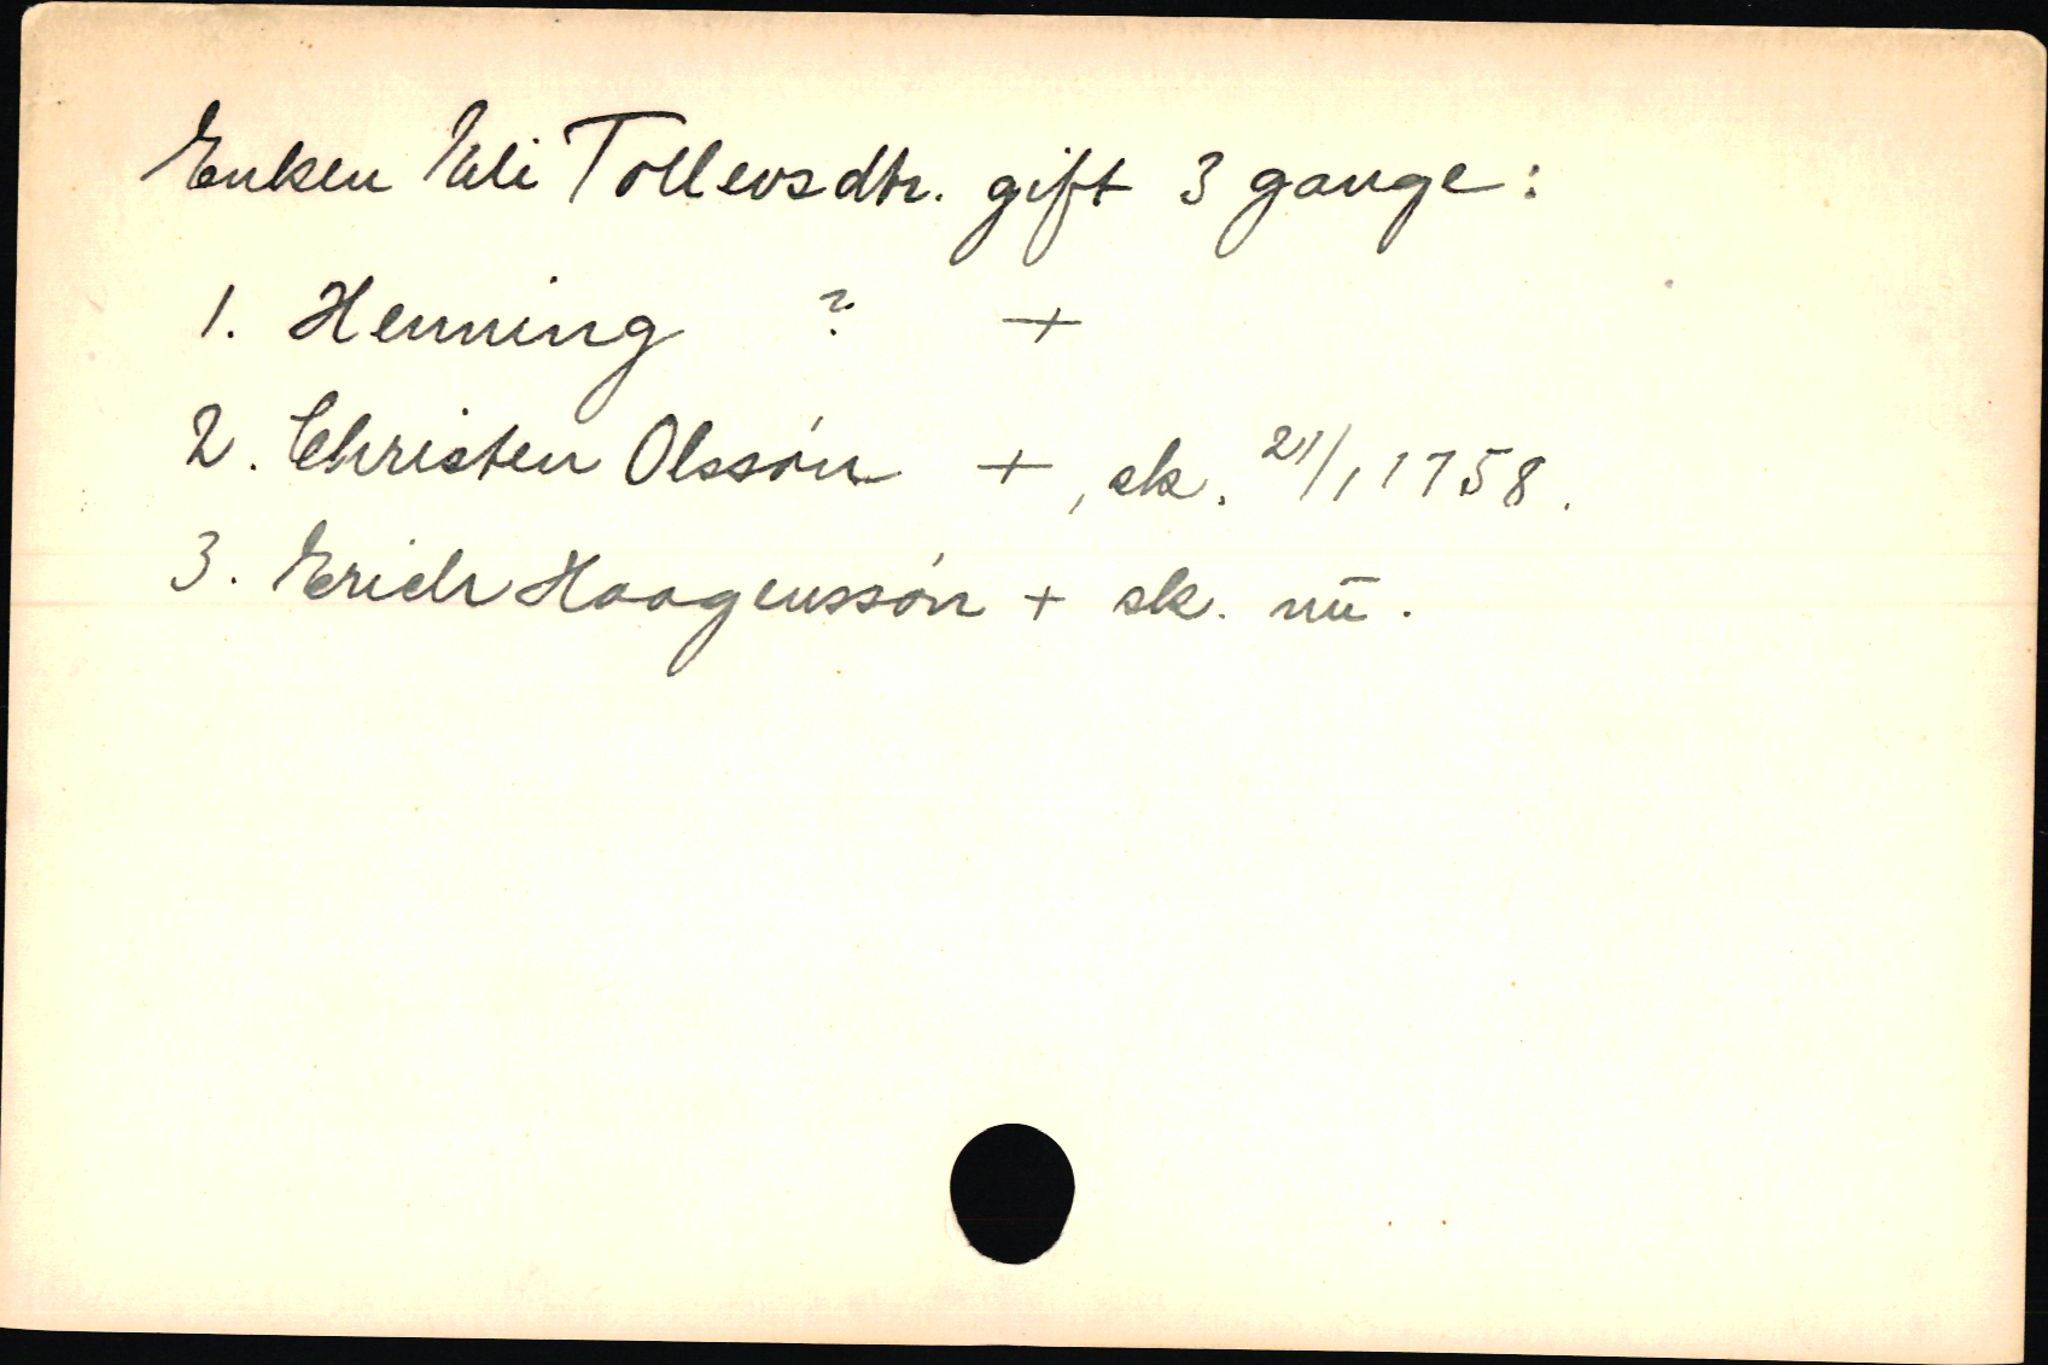 Enken Eli Tollevsdtr. gift 3 gange:
1. Henning ? +
2. Christen Olssön +, sk. 24/1 1758.
3. Erich Haagenssön + sk. nū.